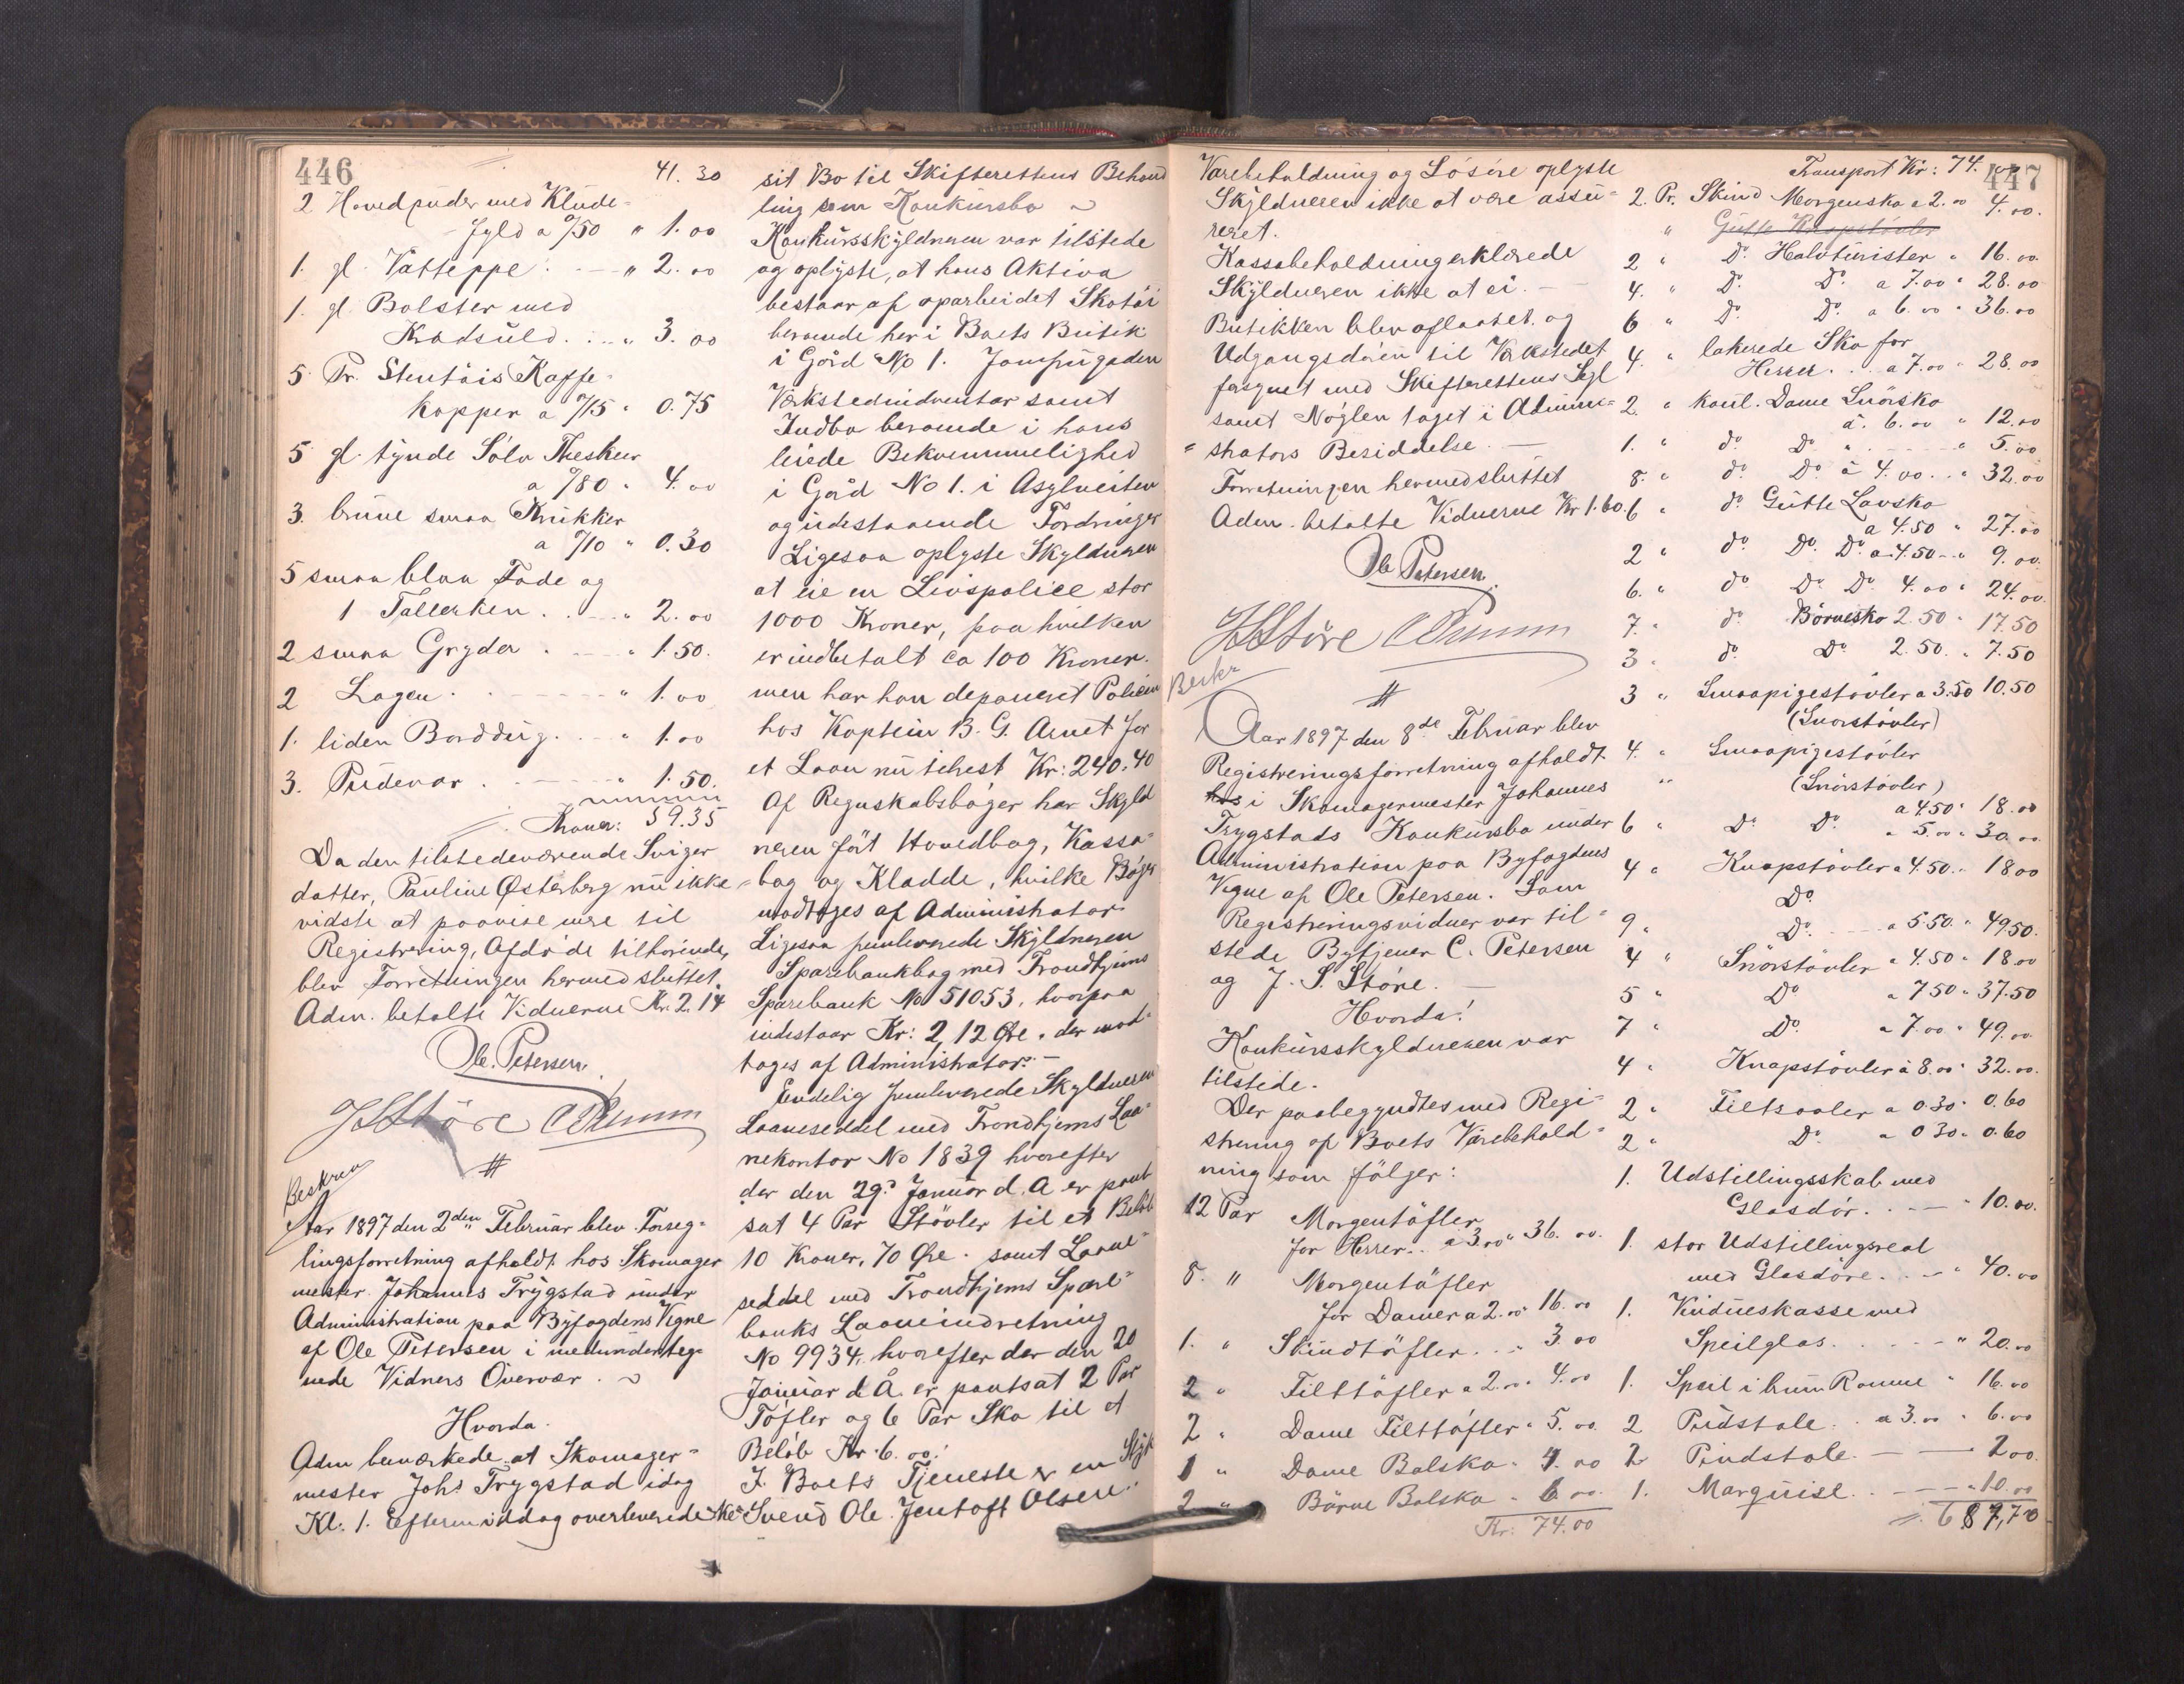 446
41. 30
2 Hovedpuder med Klude-
fyld a %50 " 1.00
1. gl. Vatteppe . — " 2.00
1. gl. Bolster med
Kradsuld . . . " 3.00
5 Pr. Stentöis Kaffe-
kopper a %15 " 0.75
5 gl. tynde Sölv Theskeer
a %80 " 4.00
3. brune smaa Krukker
a %10 " 0.30
5 smaa blaa Fade og
1 Tallerken . . — " 2.00
2 smaa Gryder . — " 1.50.
2 Lagen . — " 1.00
1. liden Borddug . . — " 1.00
3. Pudevar . — " 1.50.
Kroner: 59.35
Da den tilstedeværende Sviger
datter, Pauline Østerberg nu ikke
vidste at paavise mere til
Registrering, Afdøde tilhørende,
blev Forretningen hermed sluttet.
Adm. betalte Vidnerne Kr. 2.14
Ole Petersen.
J S Störe
#
Beskrev
Aar 1897 den 2den Februar blev Forseg-
lingsforretning afholdt hos Skomager
mester Johannes Trygstad under
Administration paa Byfogdens Vegne
af Ole Petersen i medunderteg-
nede Vidners Overvær.
Hvorda.
Adm bemærkede at Skomager-
mester Johs Trygstad idag
Kl. 1. Eftermiddag overleverede
sit Bo til Skifterettens Behand
ling som Konkursbo
Konkursskyldneren var tilstede
og oplyste, at hans Aktiva
bestaar af oparbeidet Skotöi
beroende her i Boets Butik
i Gård No 1. Jomfrugaden
Værkstedindventar samt
Indbo beroende i hans
leiede Bekvemmelighed
i Gård No 1. i Asylveiten
og udestaaende Fordringer
Ligesaa oplyste Skyldneren
at eie en Livspolice stor
1000 Kroner, paa hvilken
er indbetalt ca 100 Kroner.
men har han deponeret Policen
hos Kaptein B. G. Arnet for
et Laan nu tilrest Kr: 240.40
Af Regnskabsböger har Skyld
neren fört Hovedbog, Kassa-
bog og Kladde, hvilke Böger
modtoges af Administrator
Ligesaa fremleverede Skyldneren
Sparebankbog med Trondhjems
Sparebank No 51053, hvorpaa
indestaar Kr: 2,12 Øre, der mod-
toges af Administrator. —
Endelig fremleverede Skyldneren
Laaneseddel med Trondhjems Laa-
nekontor No 1839 hvorefter
der den 29d Januar d. A er pant
sat 4 Par Stövler til et Belöb
10 Kroner, 70 Øre. samt Laane-
seddel med Trondhjems Spare-
banks Laaneindretning
No 9934, hvorefter der den 20
Januar d. Å. er pantsat 2 Par
Töfler og 6 Par Sko til et
Belöb Kr. 6.00.
I Boets Tjeneste er en
Svend Ole Jentoft Olsen.
447
Varebeholdning og Lösöre oplyste
Skyldneren ikke at være assu-
reret.
Kassabeholdning erklærede
Skyldneren ikke at ei. —
Butikken blev aflaaset og
Udgangsdøren til Værkstedet
forsynet med Skifterettens Segl
samt Nöglen taget i Admini-
strators Besiddelse. —
Forretningen hermed sluttet
Adm. betalte Vidnerne Kr 1.60.
Ole Petersen.
J S Störe
Beskr
#
Aar 1897 den 8de Februar blev
Registreringsforretning afholdt
hos i Skomagermester Johannes
Trygstads Konkursbo under
Administration paa Byfogdens
Vegne af Ole Petersen. Som
Registreringsvidner var til-
stede Bytjener C. Petersen
og J. S. Störe. —
Hvorda!
Konkursskyldneren var
tilstede.
Der paabegyndtes med Regi-
strering af Boets Varebehold-
ning som fölger:
12 Par Morgentöfler
for Herrer . . a 3.00 " 36.00.
8. " Morgentöfler
for Damer a 2.00 " 16.00
1. " Skindtöfler . . . " 3.00
2 " Filttöfler a 2.00 " 4.00
2 " Dame Filttöfler " 5.00.
1 " Dame Balsko " 4.00
2 " Börne Balsko " 6.00.
Kr: 74.00
Transport Kr: 74.00
2. Pr. Skind Morgensko a 2.00 4.00.
" Gutte Knapstövler
2 " Do Halvturister " 16.00.
4. " Do Do a 7.00 " 28.00
6 " Do Do a 6.00 " 36.00
4. " lakerede Sko for
Herrer . . a 7.00 " 28.00
2. " Dame Snörsko
a. 6.00 " 12.00
1. " do Do " . . — " 5.00
8. " do Do a 4.00 . . " 32.00
6 " do Gutte Lavsko
a 4.50 " 27.00
2 " do Do. Do a 4.50 — " 9.00.
6. " do Do Do 4.00 " 24.00.
7. " do Börnesko 2.50 " 17.50
3 " do Do 2.50. " 7.50
3 " Smaapigestövler a 3.50 10.50
(Snörstövler)
4. " Smaapigestövler
" (Snörstövler)
a 4.50 " 18.00
6 " Do Do " 5.00 " 30.00.
4 " Knapstövler a 4.50 " 18.00
Do
9 " Do — a 5.50. " 49.50.
4 " Snörstövler a 4.50 " 18.00
5 " Do a 7.50 " 37.50
7 " Do a 7.00 " 49.00
4 " Knapstövler a 8.00 " 32.00.
2 " Filtsaaler a 0.30 " 0.60
2 " Do a 0.30 " 0.60
1. Udstillingsskab med
Glasdör . . — " 10.00.
1. stor Udstillingsreal
med Glasdöre . . — " 40.00
1. Vindueskasse med
Speilglas . . . — " 20.00
1. Speil i brun Ramme " 16.00
2 Pudstole . . a 3.00 " 6.00
2 Pindstole . — 2.00.
1. Marquise . . — " 10.00
687,70